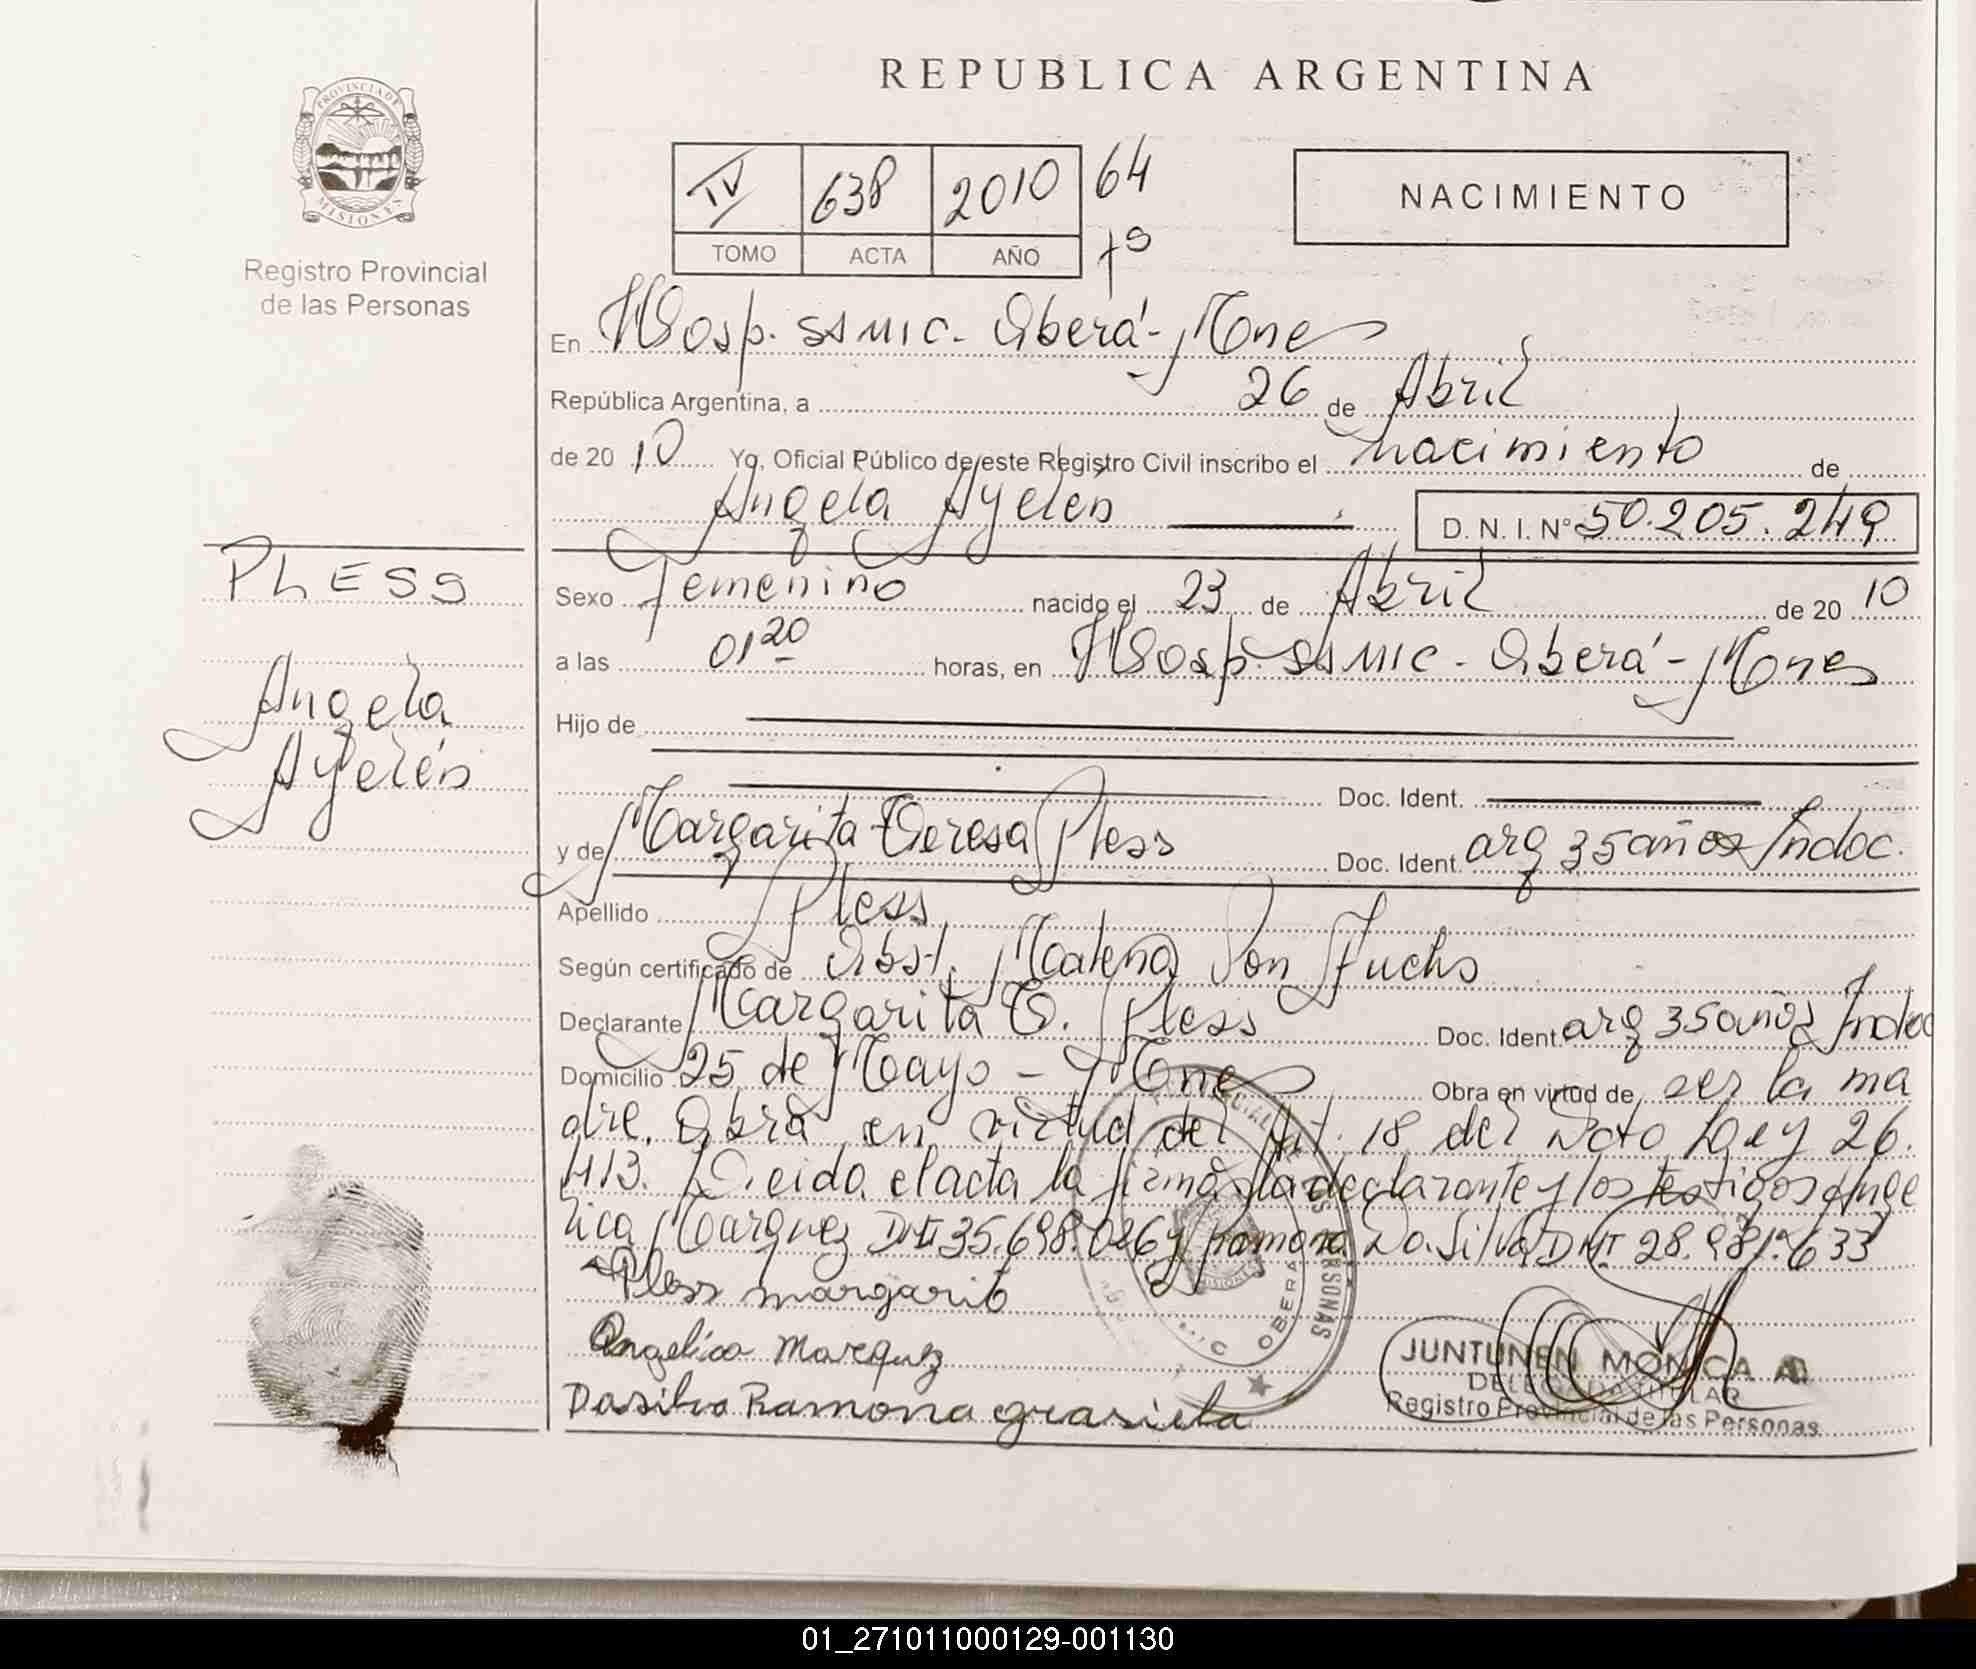 REPUBLICA ARGENTINA
PROVINCIA DE
MISIONES
Registro Provincial
de las Personas
IV 638 2010 64
TOMO ACTA AÑO fº
NACIMIENTO
En Hosp. SSMIC- Oberá- Mnes
República Argentina, a 26 de Abril
de 20 10 Yo, Oficial Público de este Registro Civil inscribo el nacimiento de
Angela Ayelén D. N. I. Nº 50.205.249
PLESS
Angela
Ayelén
Sexo Femenino nacido el 23 de Abril de 20 10
a las 01 20 horas, en Hosp. SSMIC- Oberá- Mnes
Hijo de
Doc. Ident.
y de Margarita Teresa Pless Doc. Ident. arg 35 años Indoc.
Apellido Pless
Según certificado de Obst. Malena Von Fuchs
Declarante Margarita T. Pless Doc. Ident. arg 35 años Indoc
Domicilio 25 de Mayo - Mnes Obra en virtud de ser la ma
dre. Obra en virtud del Art. 18 del Dcto Ley 26.
413. Leida el acta la firma la declarante y los testigos Ange
lica Marquez DNI 35.698.026 y Ramona Da Silva DNI 28.981.633
Pless margarit
Angelica Marquez
Dasilva Ramona grasiela
OBERA
JUNTUNEN MONICA A
DELEGADA TITULAR
Registro Provincial de las Personas
01_271011000129-001130